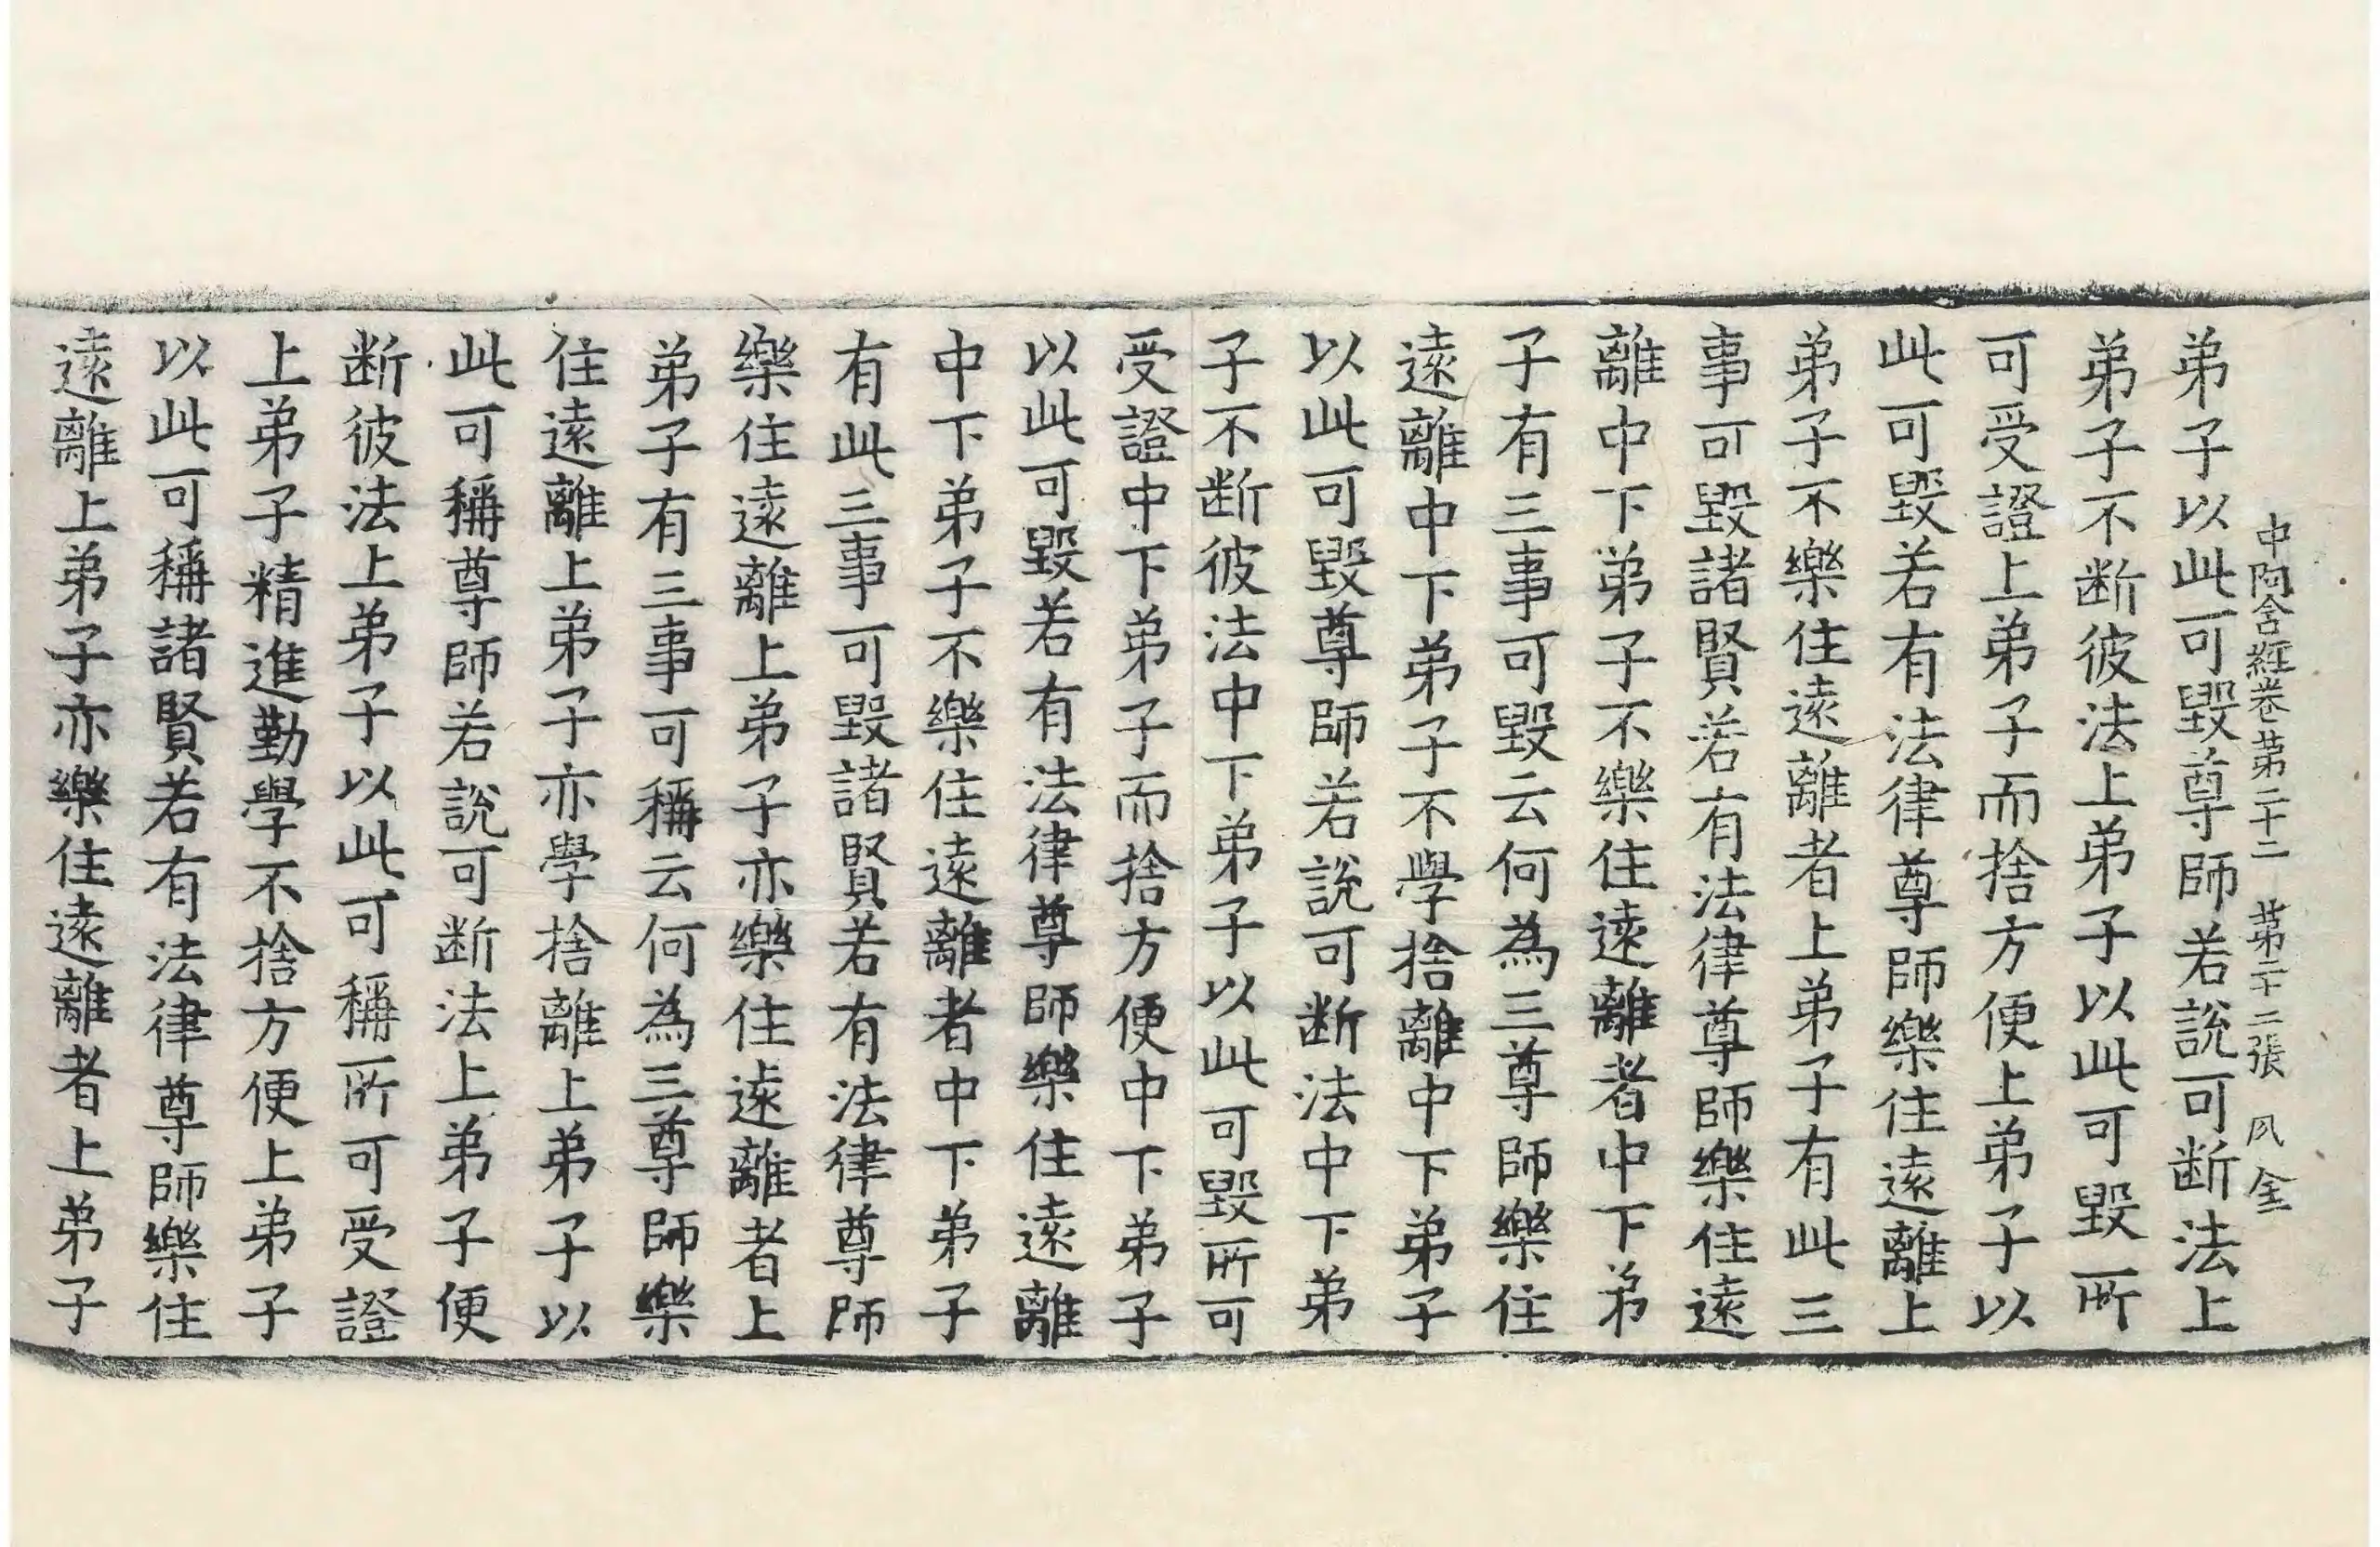 中阿含經卷第二十二　第二十二張　夙　金
弟子以此可毀尊師若說可断法上
弟子不断彼法上弟子以此可毀所
可受證上弟子而捨方便上弟子以
此可毀若有法律尊師樂住遠離上
弟子不樂住遠離者上弟子有此三
事可毀諸賢若有法律尊師樂住遠
離中下弟子不樂住遠離者中下弟
子有三事可毀云何為三尊師樂住
遠離中下弟子不學捨離中下弟子
以此可毀尊師若說可断法中下弟
子不断彼法中下弟子以此可毀所可
受證中下弟子而捨方便中下弟子
以此可毀若有法律尊師樂住遠離
中下弟子不樂住遠離者中下弟子
有此三事可毀諸賢若有法律尊師
樂住遠離上弟子亦樂住遠離者上
弟子有三事可稱云何為三尊師樂
住遠離上弟子亦學捨離上弟子以
此可稱尊師若說可断法上弟子便
断彼法上弟子以此可稱所可受證
上弟子精進勤學不捨方便上弟子
以此可稱諸賢若有法律尊師樂住
遠離上弟子亦樂住遠離者上弟子